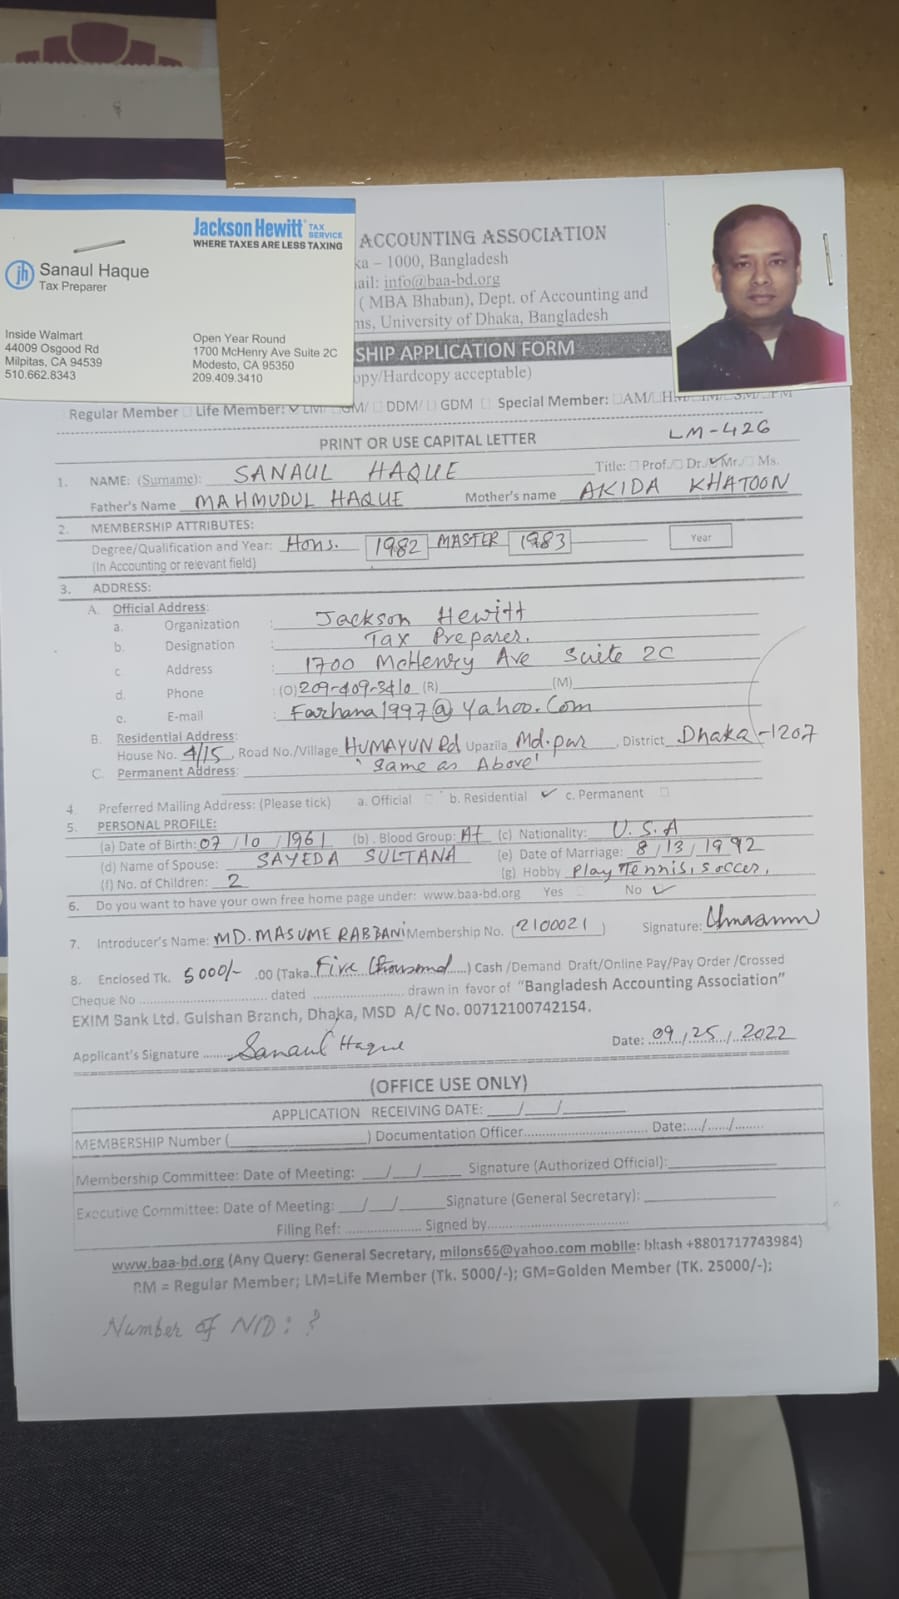 Jackson Hewitt TAX SERVICE
WHERE TAXES ARE LESS TAXING
jh Sanaul Haque
Tax Preparer
Inside Walmart
44009 Osgood Rd
Milpitas, CA 94539
510.662.8343
Open Year Round
1700 McHenry Ave Suite 2C
Modesto, CA 95350
209.409.3410
ACCOUNTING ASSOCIATION
ka – 1000, Bangladesh
ail: info@baa-bd.org
( MBA Bhaban), Dept. of Accounting and
ms, University of Dhaka, Bangladesh
SHIP APPLICATION FORM
opy/Hardcopy acceptable)
Regular Member Life Member: ✓ LM/ GM/ DDM/ GDM Special Member: AM/
LM-426
PRINT OR USE CAPITAL LETTER
1. NAME: (Surname): SANAUL HAQUE Title: Prof. Dr. ✓ Mr. Ms.
Father's Name MAHMUDUL HAQUE Mother's name AKIDA KHATOON
2. MEMBERSHIP ATTRIBUTES:
Degree/Qualification and Year: Hons. 1982 MASTER 1983 Year
(In Accounting or relevant field)
3. ADDRESS:
A. Official Address:
a. Organization : Jackson Hewitt
b. Designation : Tax Preparer.
c. Address : 1700 McHenry Ave Suite 2C
d. Phone : (O) 209-409-3410 (R) (M)
e. E-mail : Farhana1997@Yahoo.Com
B. Residential Address:
House No. 4/15, Road No./Village HUMAYUN Rd Upazila Md.pur, District Dhaka-1207
C. Permanent Address: 'Same as Above'
4. Preferred Mailing Address: (Please tick) a. Official b. Residential ✓ c. Permanent
5. PERSONAL PROFILE:
(a) Date of Birth: 07/10/1961 (b). Blood Group: A+ (c) Nationality: U.S.A
(d) Name of Spouse: SAYEDA SULTANA (e) Date of Marriage: 8/13/1992
(f) No. of Children: 2 (g) Hobby Play Tennis, Soccer,
6. Do you want to have your own free home page under: www.baa-bd.org Yes No ✓
7. Introducer's Name: MD. MASUME RABBANI Membership No. (2100021) Signature:
8. Enclosed Tk. 5000/- .00 (Taka Five thousand) Cash /Demand Draft/Online Pay/Pay Order /Crossed
Cheque No dated drawn in favor of "Bangladesh Accounting Association"
EXIM Bank Ltd. Gulshan Branch, Dhaka, MSD A/C No. 00712100742154.
Applicant's Signature Sanaul Haque Date: 09/25/2022
(OFFICE USE ONLY)
APPLICATION RECEIVING DATE: ___/___/______
MEMBERSHIP Number (____________) Documentation Officer Date:..../....../........
Membership Committee: Date of Meeting: ___/___/_____ Signature (Authorized Official):
Executive Committee: Date of Meeting: ___/___/_____ Signature (General Secretary):
Filing Ref: Signed by
www.baa-bd.org (Any Query: General Secretary, milons66@yahoo.com mobile: bkash +8801717743984)
RM = Regular Member; LM=Life Member (Tk. 5000/-); GM=Golden Member (TK. 25000/-);
Number of NID: ?